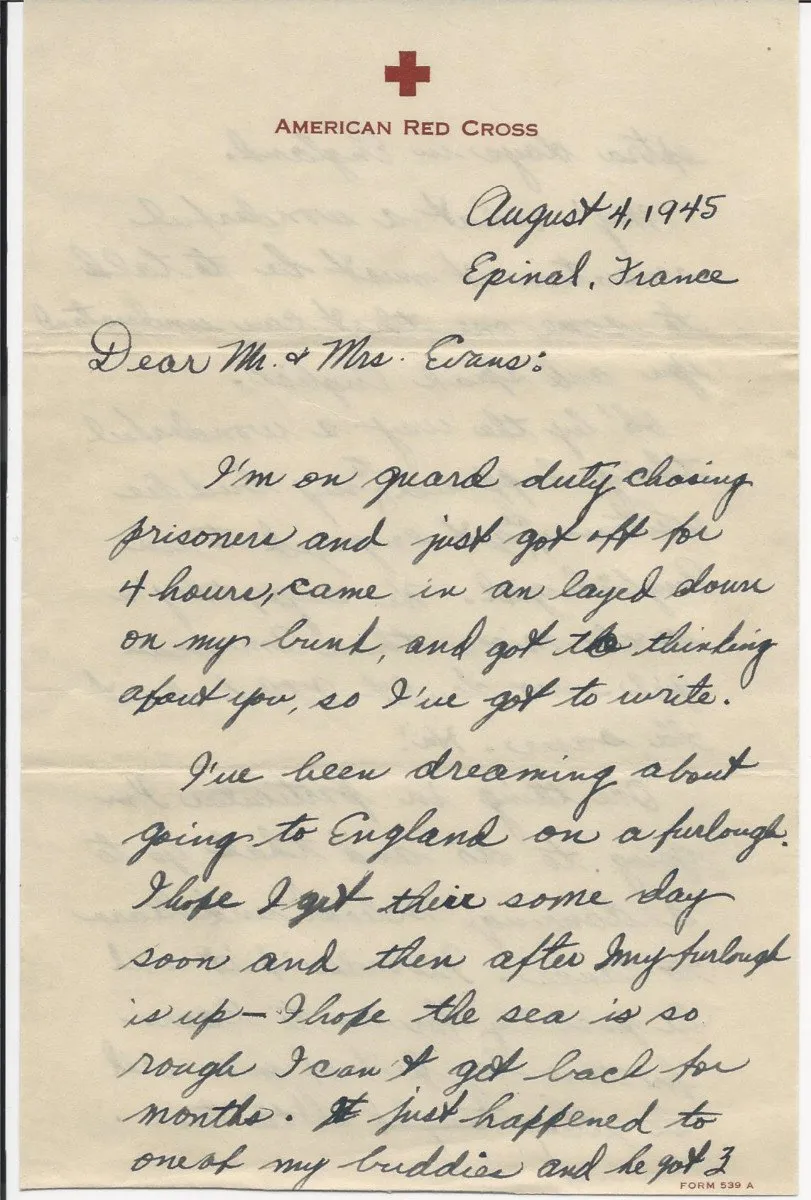 AMERICAN RED CROSS
August 4, 1945
Epinal, France
Dear Mr. & Mrs. Evans:
I'm on guard duty chasing
prisoners and just got off for
4 hours, came in an layed down
on my bunk, and got to thinking
about you, so I've got to write.
I've been dreaming about
going to England on a furlough.
I hope I get there some day
soon and then after my furlough
is up – I hope the sea is so
rough I can't get back for
months. It just happened to
one of my buddies and he got 3
FORM 539 A